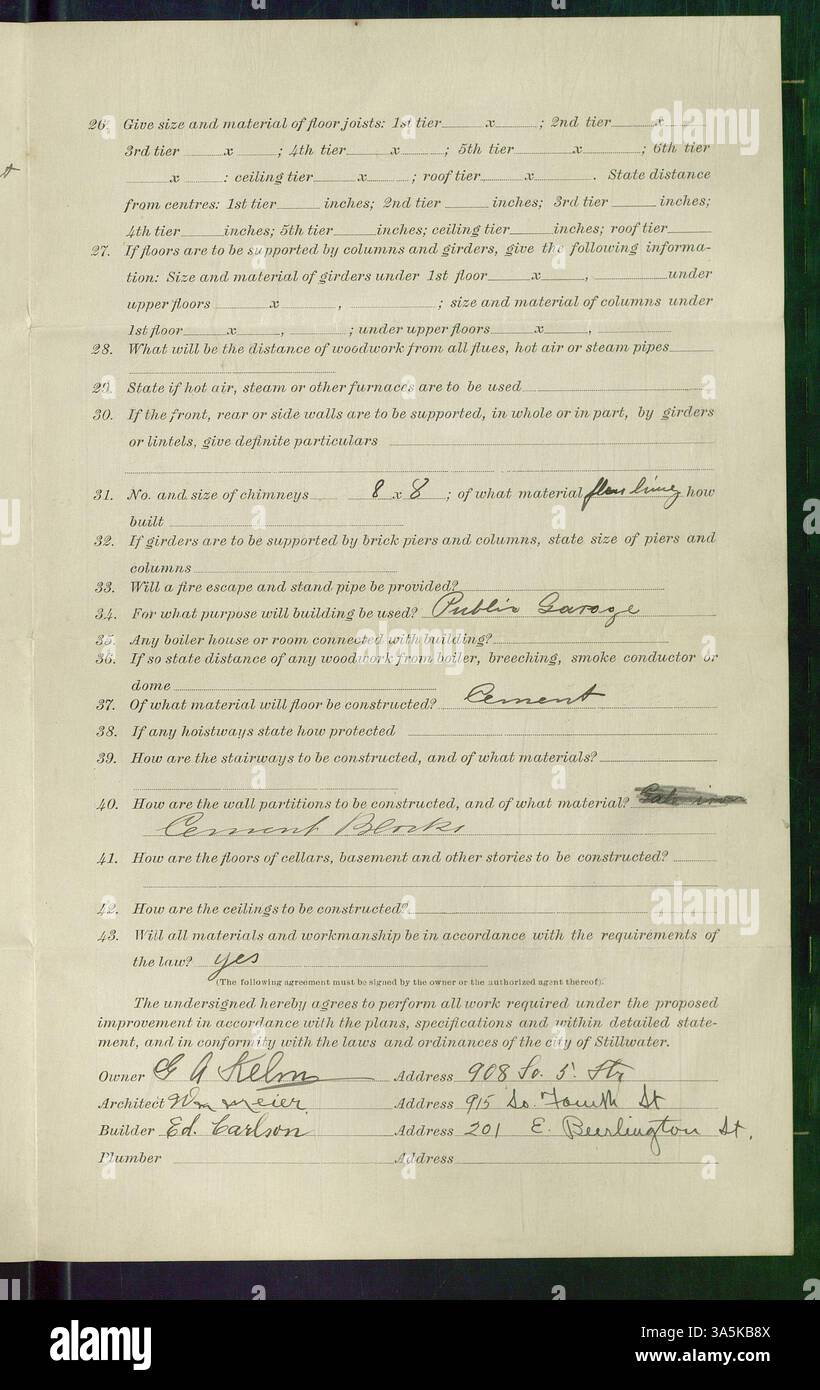 26. Give size and material of floor joists: 1st tier x ; 2nd tier x
3rd tier x ; 4th tier x ; 5th tier x ; 6th tier
x : ceiling tier x ; roof tier x . State distance
from centres: 1st tier inches; 2nd tier inches; 3rd tier inches;
4th tier inches; 5th tier inches; ceiling tier inches; roof tier
27. If floors are to be supported by columns and girders, give the following informa-
tion: Size and material of girders under 1st floor x , under
upper floors x , ; size and material of columns under
1st floor x , ; under upper floors x ,
28. What will be the distance of woodwork from all flues, hot air or steam pipes
29. State if hot air, steam or other furnaces are to be used
30. If the front, rear or side walls are to be supported, in whole or in part, by girders
or lintels, give definite particulars
31. No. and size of chimneys 8 x 8 ; of what material lining how
built
32. If girders are to be supported by brick piers and columns, state size of piers and
columns
33. Will a fire escape and stand pipe be provided?
34. For what purpose will building be used? Public Garage
35. Any boiler house or room connected with building?
36. If so state distance of any woodwork from boiler, breeching, smoke conductor or
dome
37. Of what material will floor be constructed? Cement
38. If any hoistways state how protected
39. How are the stairways to be constructed, and of what materials?
40. How are the wall partitions to be constructed, and of what material?
Cement Blocks
41. How are the floors of cellars, basement and other stories to be constructed?
42. How are the ceilings to be constructed?
43. Will all materials and workmanship be in accordance with the requirements of
the law? yes
(The following agreement must be signed by the owner or the authorized agent thereof).
The undersigned hereby agrees to perform all work required under the proposed
improvement in accordance with the plans, specifications and within detailed state-
ment, and in conformity with the laws and ordinances of the city of Stillwater.
Owner G A Kelm Address 908 So. 5' Str
Architect Wm Meier Address 915 So. Fourth St
Builder Ed. Carlson Address 201 E. Beerlington St.
Plumber Address
alamy
Image ID: 3A5KB8X
www.alamy.com